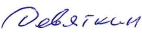 Девяткин